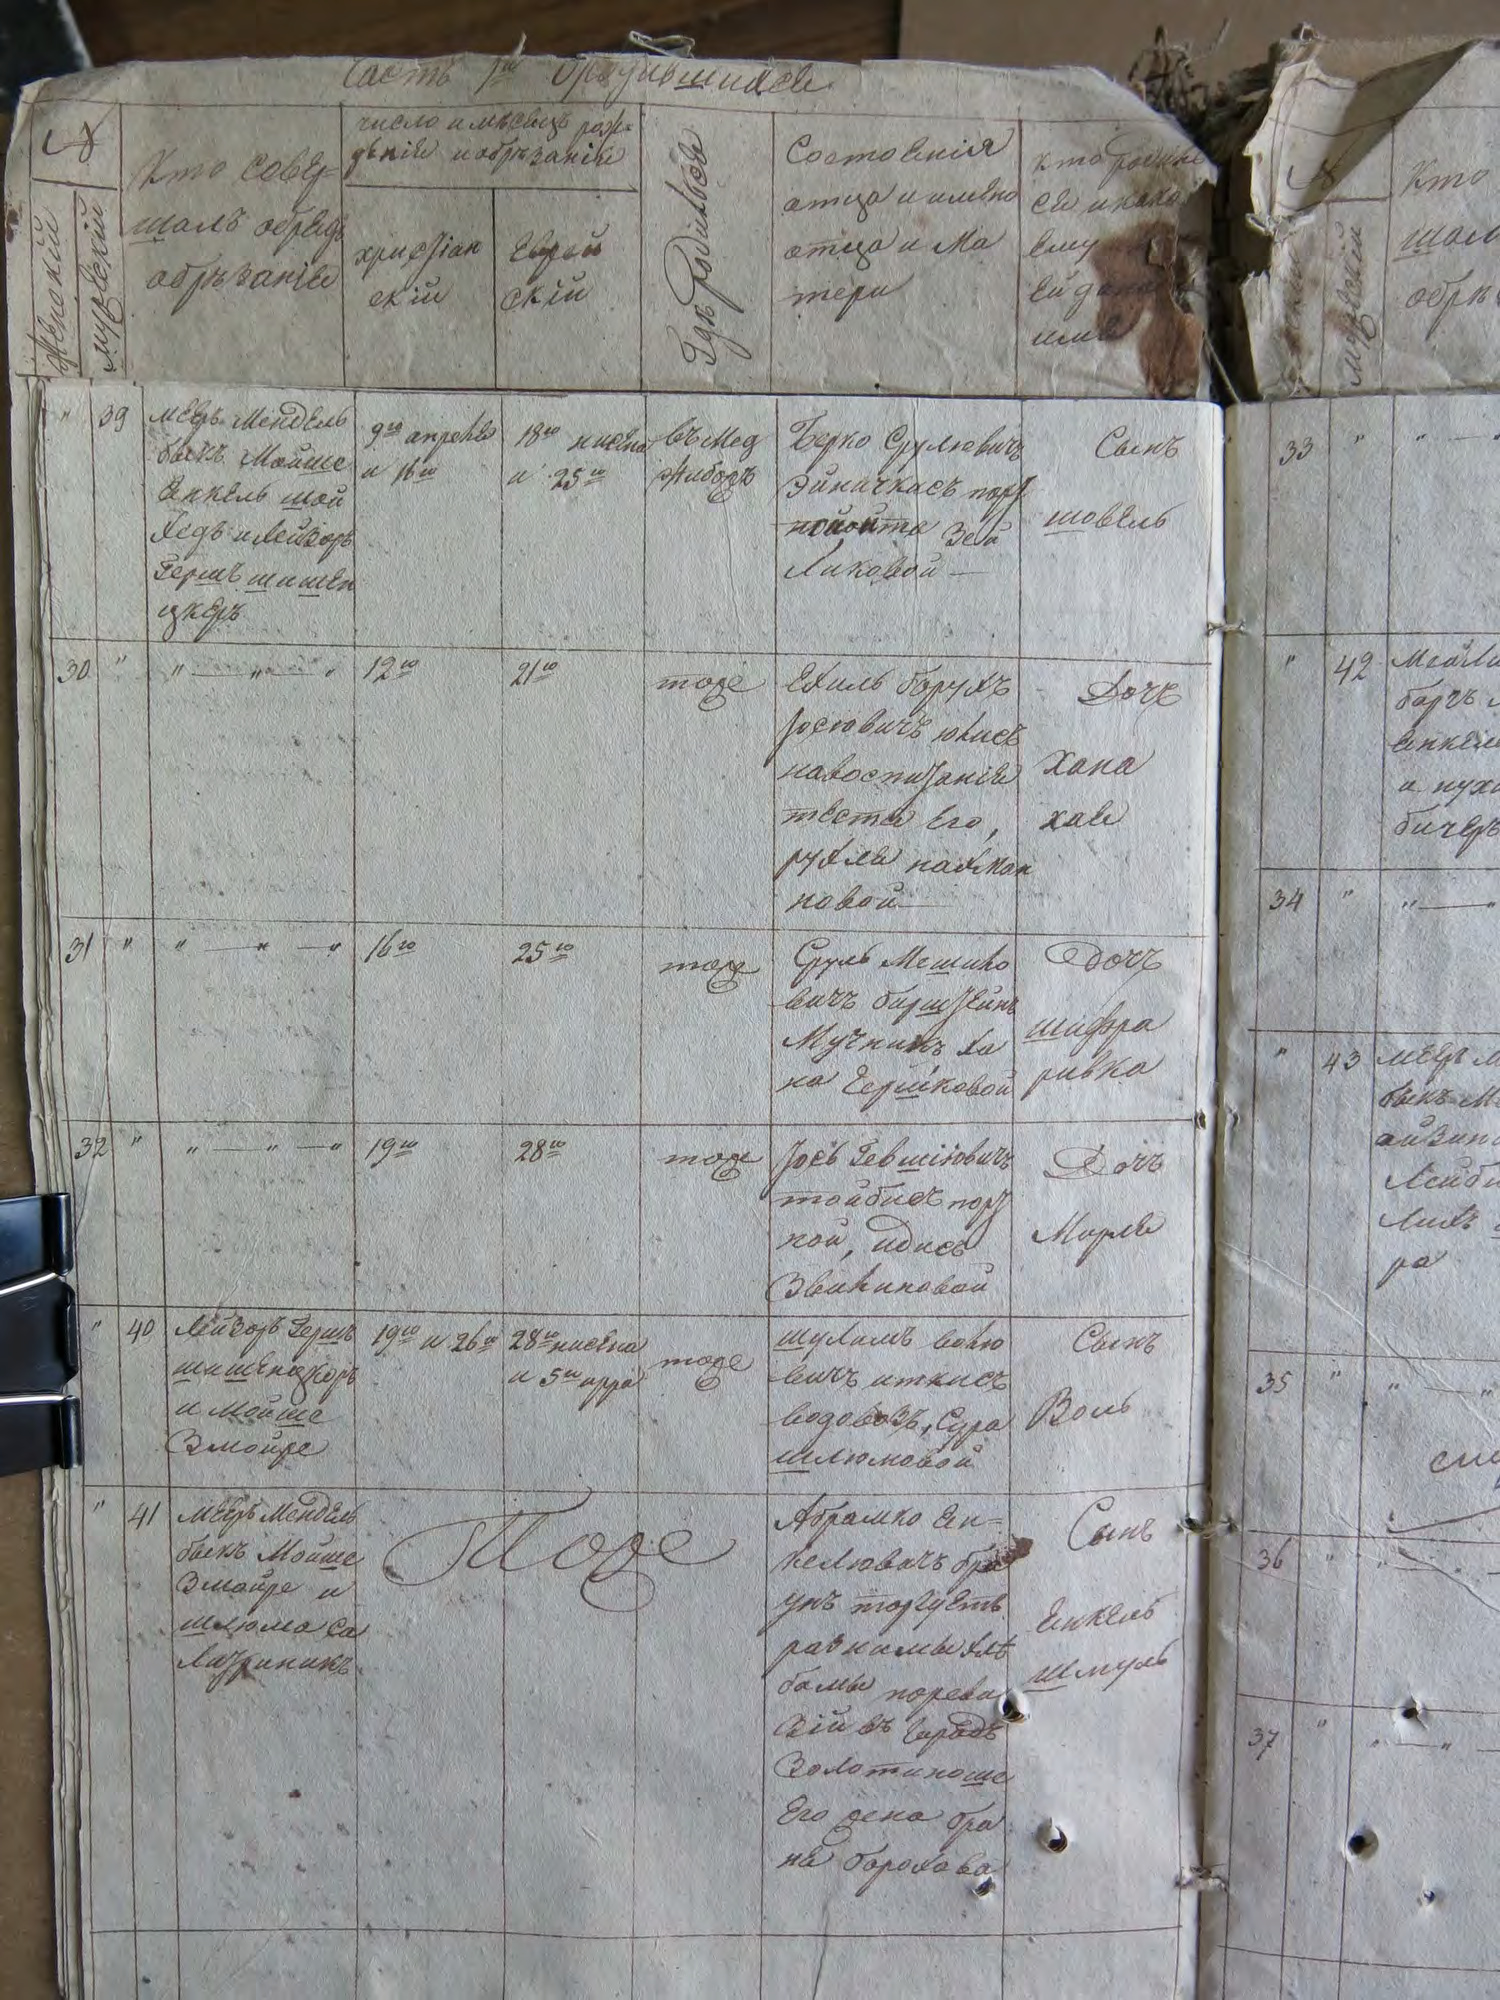 Часть 1я о родившихся
№
Женский
мужеский
Кто совер-
шалъ обрядъ
обрѣзанія
число и мѣсяцъ рож-
денія и обрѣзанія
христіан
скій
Еврей
скій
Гдѣ родился
Состоянія
отца и имяна
отца и Ма
тери
кто родил
ся и како
ему
ей дано
имя
" 39
мееръ Мендель
быкъ Мойше
Янкель шой
хедъ и Лейзоръ
Гершъ шишен
цкеръ
9го апреля
и 16го
18го нисена
и 25го
въ Мед
жибожъ
Берко Срулювичъ
Эйничкисъ порт
ной
Зей
ликовой —
Сынъ
шовель
30 "
" — " — "
12го
21го
тоже
Ехиль борухъ
Іосювичъ юкисъ
на воспитаніе
тестя его,
рухля нахман
новой —
Дочь
Хана
хая
31 "
" — " — "
16го
25го
тоже
Сруль Мошко
вичъ бирштейнъ
Мучникъ ха
на Гершковой
Дочь
шифра
ривка
32 "
" — " — "
19го
28го
тоже
Іось
тойбисъ порт
ной, идисъ
Дочь
Мирля
" 40
Лейзоръ Гершъ
шишенцкоръ
и Мойше
Змойре
19го и 26го
28го нисена
и 5го ира
тоже
шулимъ волю
вичъ иткисъ
водовозъ, Сура
шлюмовой
Сынъ
Воль
" 41
мееръ Мендель
быкъ Мойше
Змойре и
шлюма са
Тоже
Абрамко Ян-
келювичъ бра
унъ торгуетъ
разними хлѣ
бамы
въ городѣ
Золотиноше
Его жена бра
на борохова
Сынъ
Янкель
шмуль
№
мужеский
Кто
шал
обрѣ
33 " " —
" 42
боръ
Янкель
и нух
бичеръ
34 " " — "
" 43
мееръ М
быкъ М
Лейби
ра
35 " " — "
36 " " —
37 " " — "